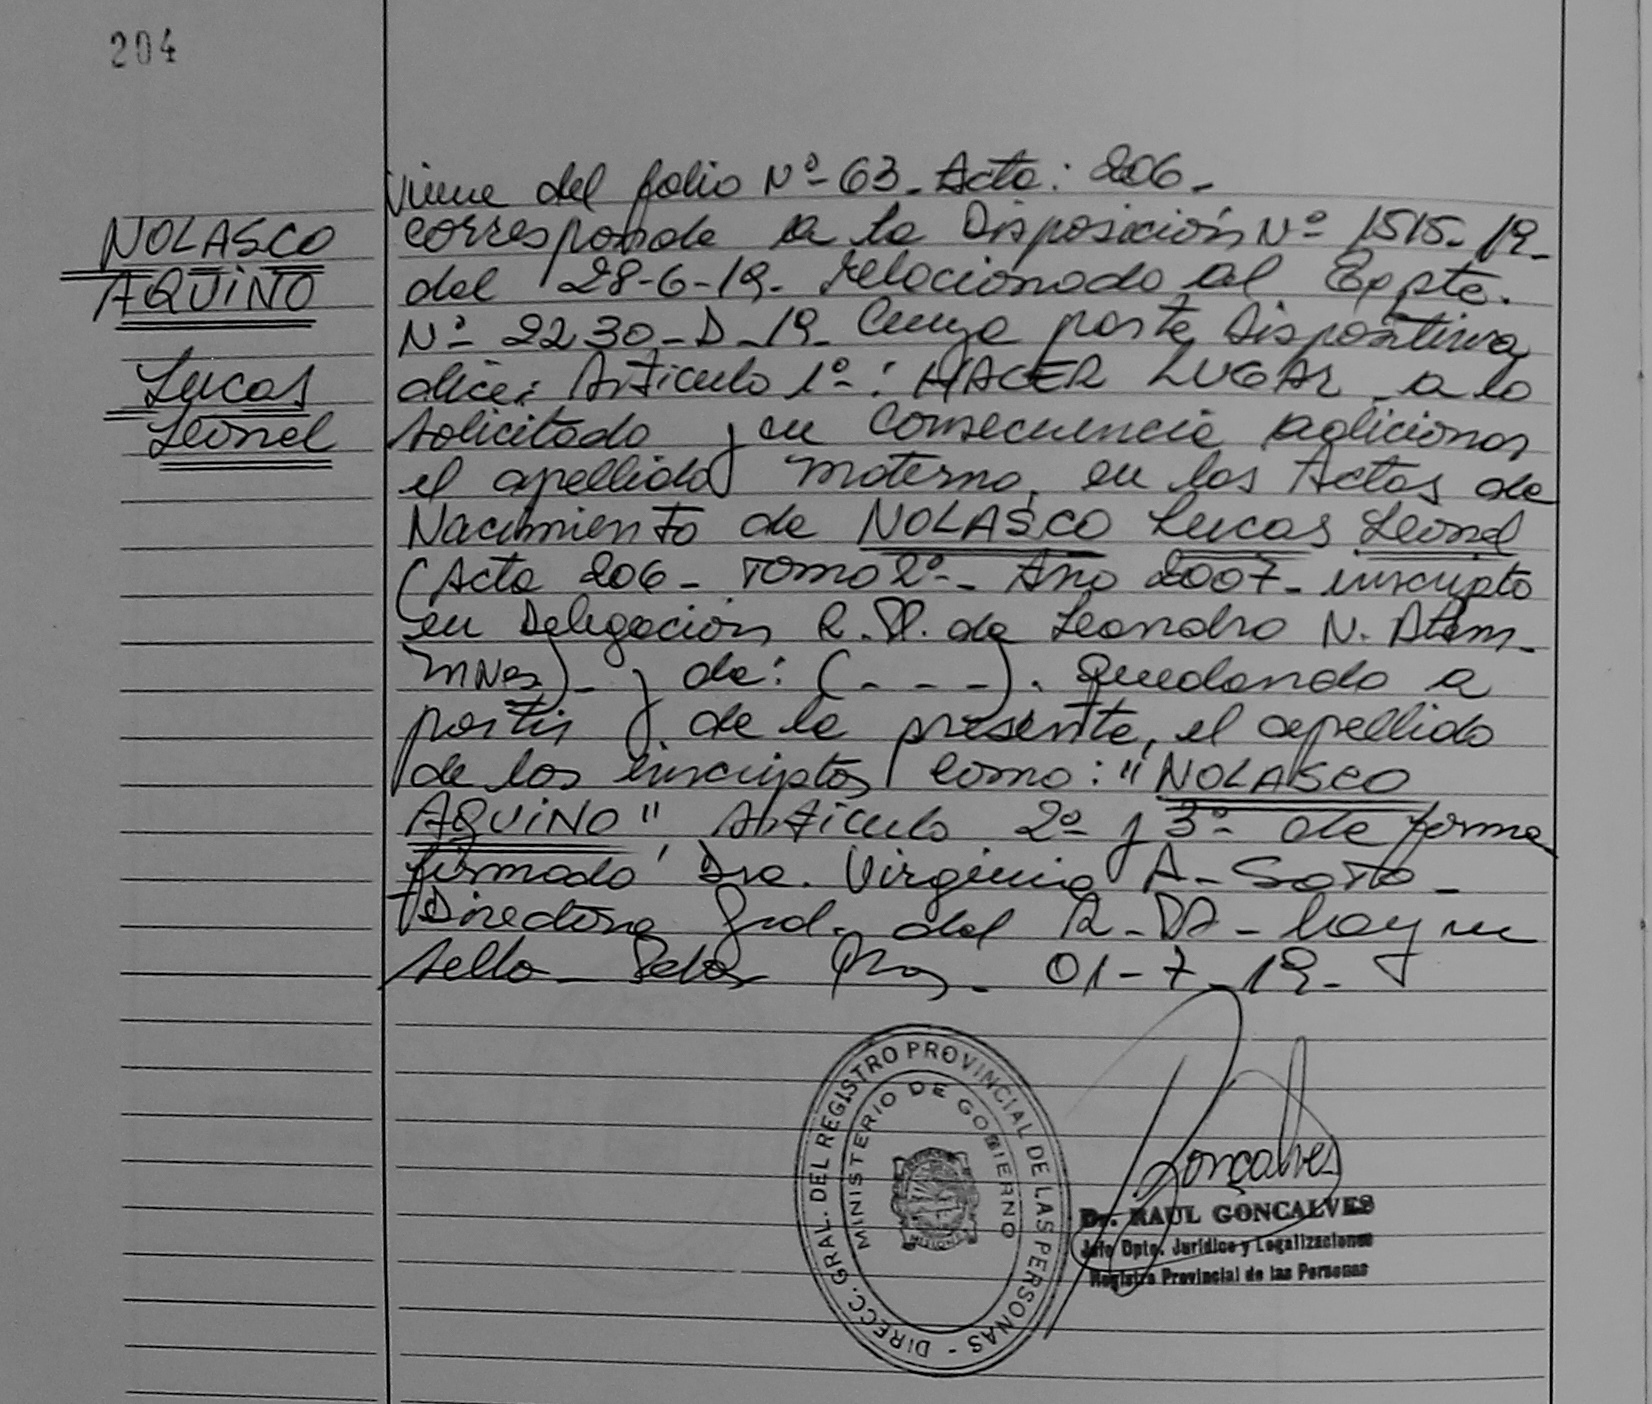 204
NOLASCO
AQUINO
Lucas
Leonel
Viene del folio Nº 63. Acta: 206.
corresponde a la Disposición Nº 1515-19.
del 28-6-19. relacionado al Expte.
Nº 2230-D-19. Cuya parte Dispositiva
dice: Artículo 1º: HACER LUGAR a lo
solicitado y en consecuencia adicionar
el apellido materno, en las Actas de
Nacimiento de NOLASCO Lucas Leonel
(Acta 206 - Tomo 2º - Año 2007 - inscripto
en Delegación R.P. de Leandro N. Alem.
Mnes) - y de: (- - -). Quedando a
partir de la presente, el apellido
de los inscriptos como: "NOLASCO
AQUINO" Artículo 2º y 3º de forma
firmado Dra. Virginia A. Soto -
Directora Gral. del R. - hay un
sello 01-7-19.
DIRECC. GRAL. DEL REGISTRO PROVINCIAL DE LAS PERSONAS -
MINISTERIO DE GOBIERNO
MISIONES
Goncalves
Dr. RAUL GONCALVES
Jefe Dpto. Jurídico y Legalizaciones
Registro Provincial de las Personas